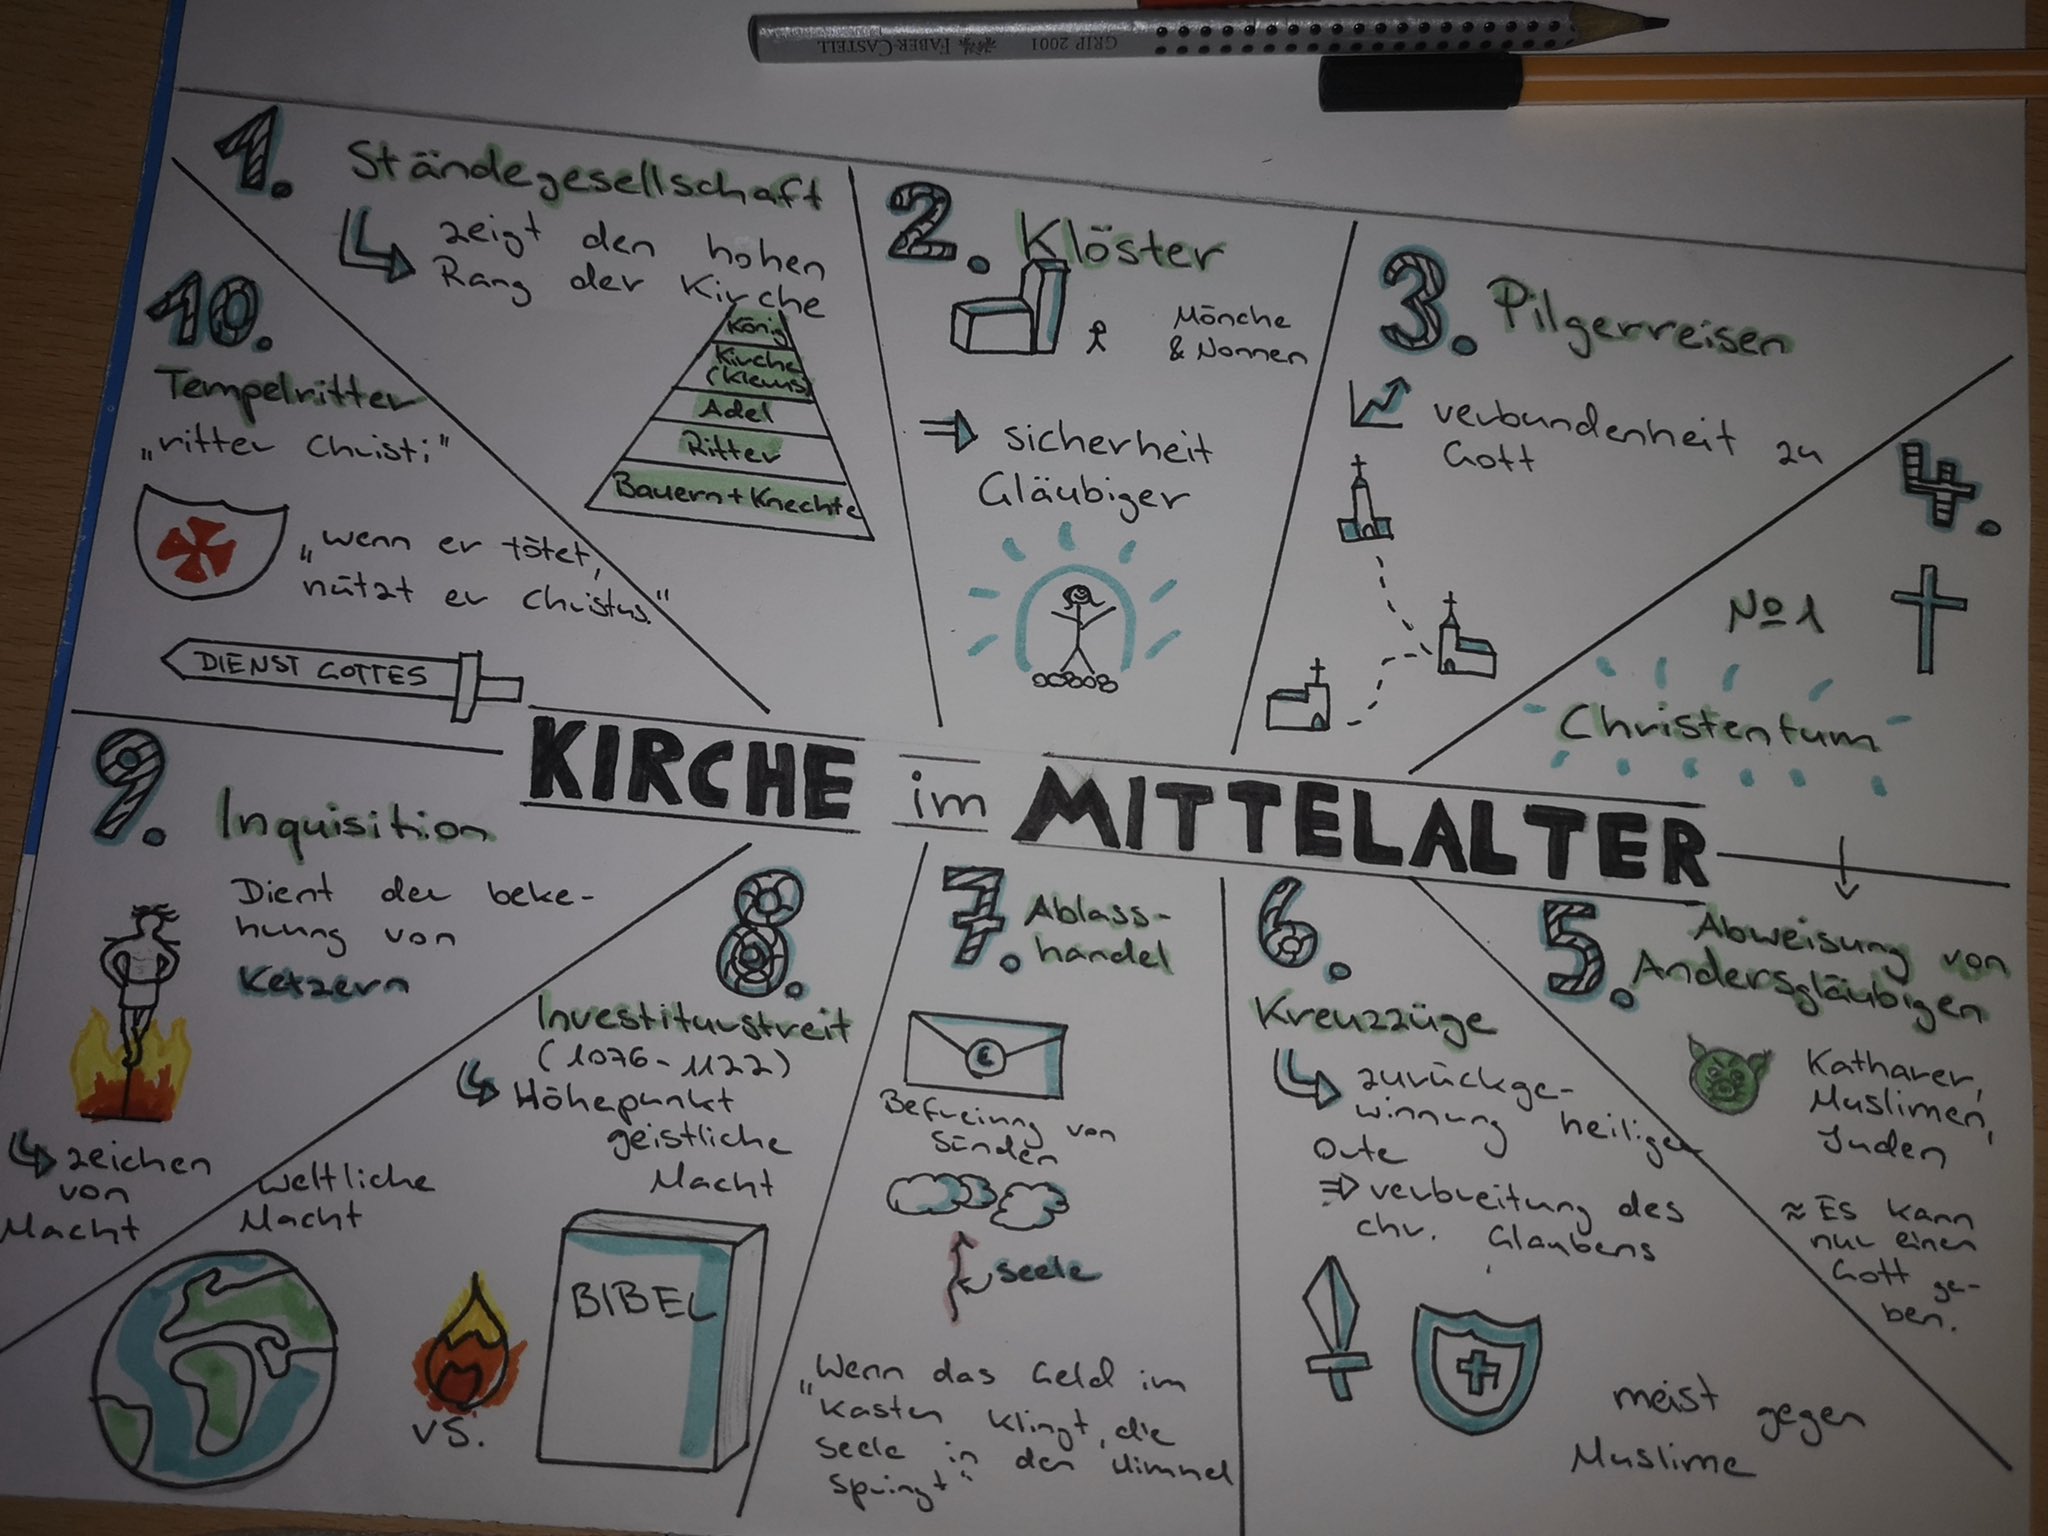 FABER-CASTELL GRIP 2001
1. Ständegesellschaft
zeigt den hohen
Rang der Kirche
König
Kirche
(Klerus)
Adel
Ritter
Bauern + Knechte
2. Klöster
Mönche
& Nonnen
⇒ sicherheit
Gläubiger
3. Pilgerreisen
verbundenheit zu
Gott
4.
No 1
Christentum
KIRCHE im MITTELALTER
5. Abweisung von
Andersgläubigen
Katharer,
Muslimen,
Juden
≈ Es kann
nur einen
Gott ge-
ben.
6.
Kreuzzüge
zurückge-
winnung heiliger
Orte
⇒ verbreitung des
chr. Glaubens
meist gegen
Muslime
7. Ablass-
handel
€
Befreiung von
Sünden
seele
„Wenn das Geld im
Kasten klingt, die
seele in den Himmel
springt"
8.
Investiturstreit
(1076-1122)
Höhepunkt
geistliche
Macht
weltliche
Macht
vs.
BIBEL
9. Inquisition
Dient der beke-
hrung von
Ketzern
zeichen
von
Macht
10.
Tempelritter
„ritter Christi"
„wenn er tötet,
nützt er Christus."
DIENST GOTTES